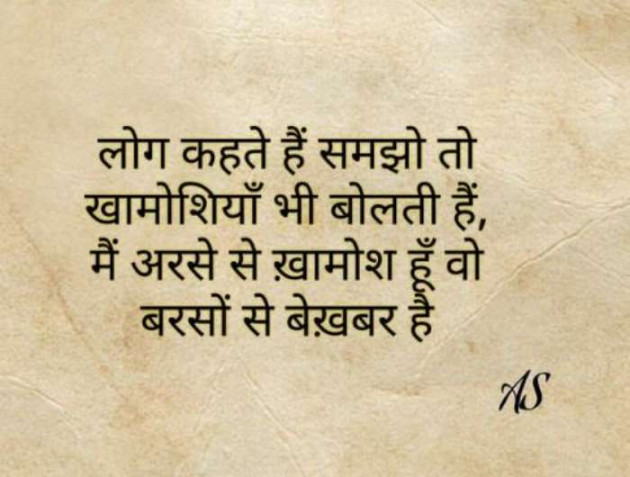 लोग कहते हैं समझो तो
खामोशियाँ भी बोलती हैं,
मैं अरसे से ख़ामोश हूँ वो
बरसों से बेख़बर है
AS